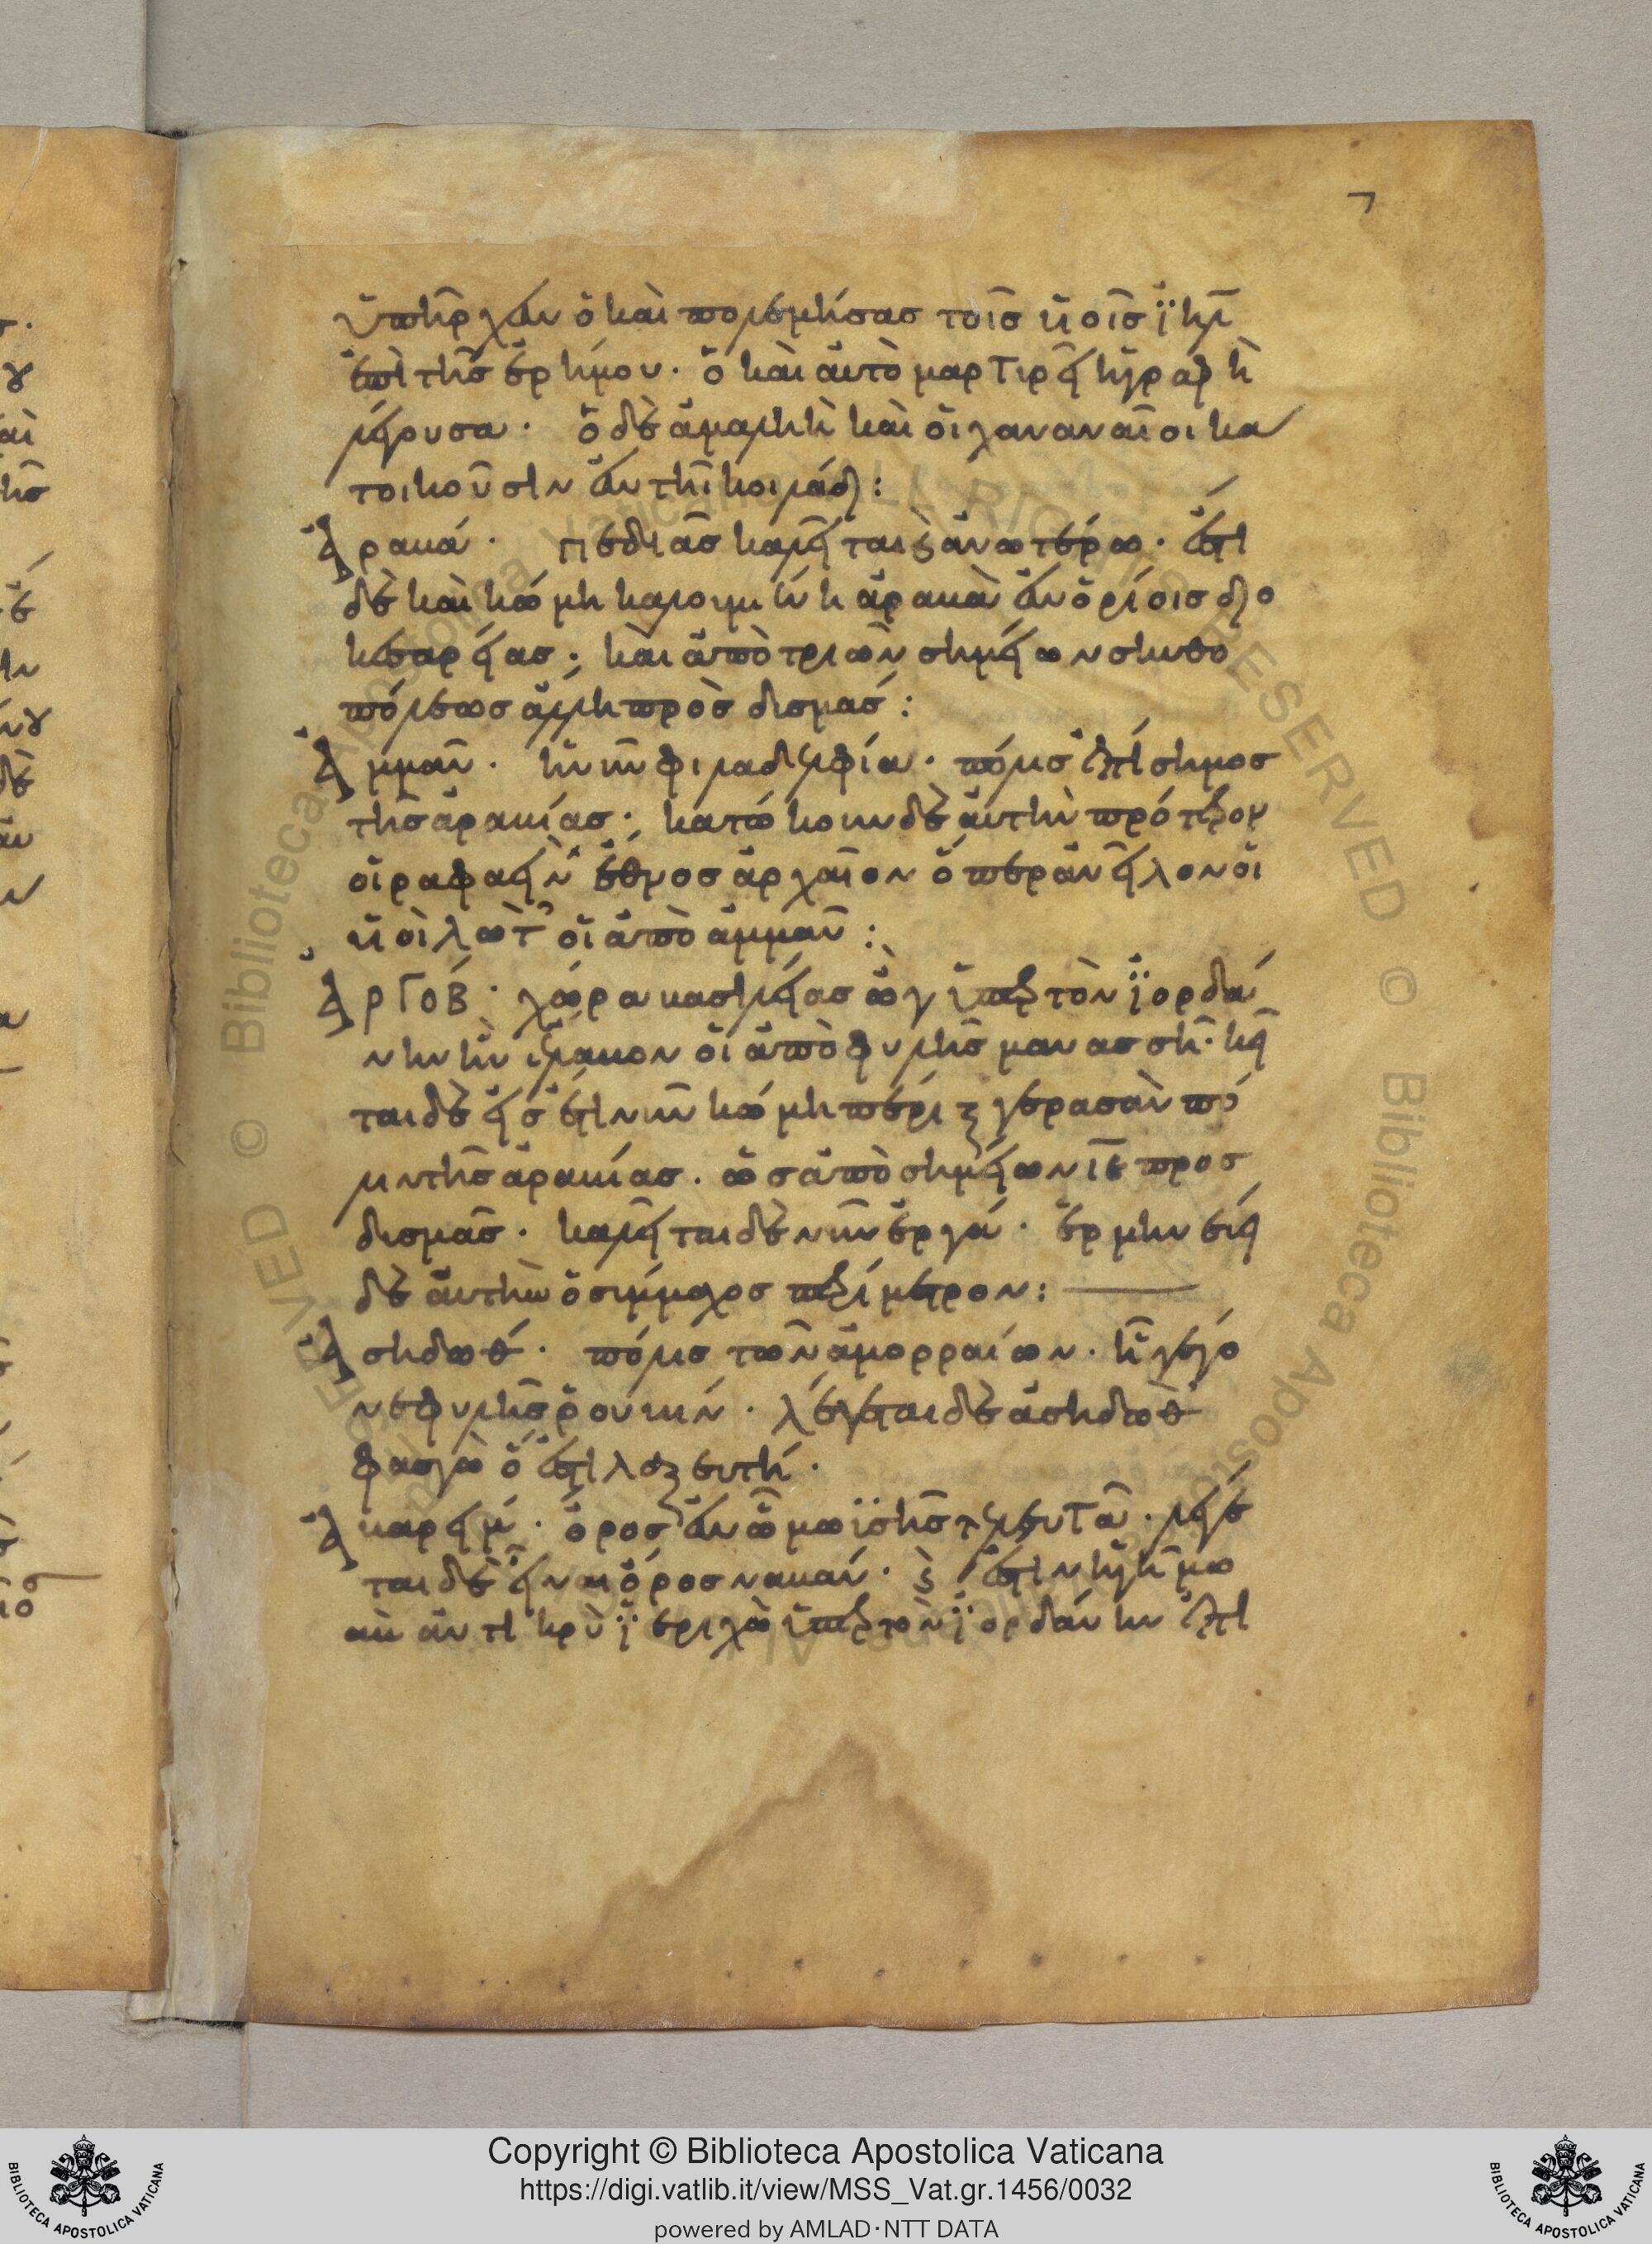 7
ὑπῆρχεν ὁ καὶ πολεμήσας τοῖς υἱοῖς ϊηλ
ἐπὶ τῆς ἐρήμου· ὃ καὶ αὐτὸ μαρτυρεῖ ἡ γραφὴ
λέγουσα· ὁ δὲ ἀμαλὴκ καὶ οἱ χαναναῖοι κα
τοικοῦσιν ἐν τῆ κοιλάδι:
Ἀραβά· πεδιὰς καλεῖται καὶ ἀνωτέρω· ἔστι
δὲ καὶ κώμη καλουμένη ἀραβὰ ἐν ὁρίοις διο
κεσαρείας· καὶ ἀπὸ τριῶν σημείων σκυθο
πόλεως ἄλλη πρὸς δυσμάς:
Ἀμμᾶν· ἡ νῦν φιλαδελφία· πόλις ἐπίσημος
τῆς ἀραβίας· κατώκουν δὲ αὐτὴν πρότερον
οἱ ραφαεὶν ἔθνος ἀρχαῖον ὅπερ ἀνεῖλον οἱ
υἱοὶ λὼτ οἱ ἀπὸ ἀμμᾶν:
Ἀργόβ· χώρα βασιλείας ὢγ ὑπὲρ τὸν ϊορδά
νην ἣν ἔλαβον οἱ ἀπὸ φυλῆς μανασσῆ· κεῖ
ται δὲ εἰς ἔτι νῦν κώμη περὶ γερασὰν πό
λιν τῆς ἀραβίας· ὡς ἀπὸ σημείων ιε πρὸς
δυσμᾶς· καλεῖται δὲ νῦν ἐργά· ἑρμηνεύει
δὲ αὐτὴν ὁ σύμμαχος περίμετρον:
Ἀσηδώθ· πόλις τῶν ἀμορραίων· ἣ γέγο
νε φυλῆς ῥουβίν· λέγεται δὲ ἀσηδὼθ
φασγὼ ὅ ἐστι λαξευτή·
Ἀβαρείμ· ὄρος ἐν ᾧ μωϋσῆς τελευτᾶ· λέγε
ται δὲ εἶναι ὄρος ναβαύ· ὅ ἐστιν ἐν γῆ μω
αβ ἀντικρὺ ϊεριχὼ ὑπὲρ τὸν ϊορδάνην ἐπὶ
Copyright © Biblioteca Apostolica Vaticana
https://digi.vatlib.it/view/MSS_Vat.gr.1456/0032
powered by AMLAD·NTT DATA